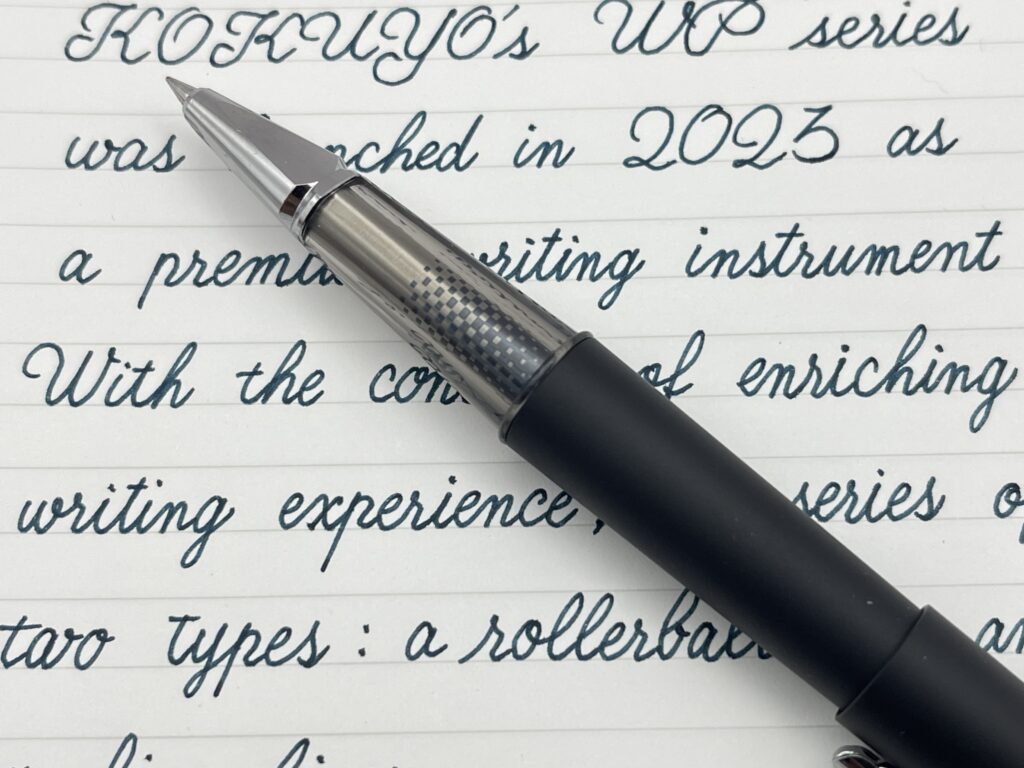 KOKUYO's WP series
was in 2023 as
a writing instrument
With the of enriching
writing experience, series
two types: a rollerball